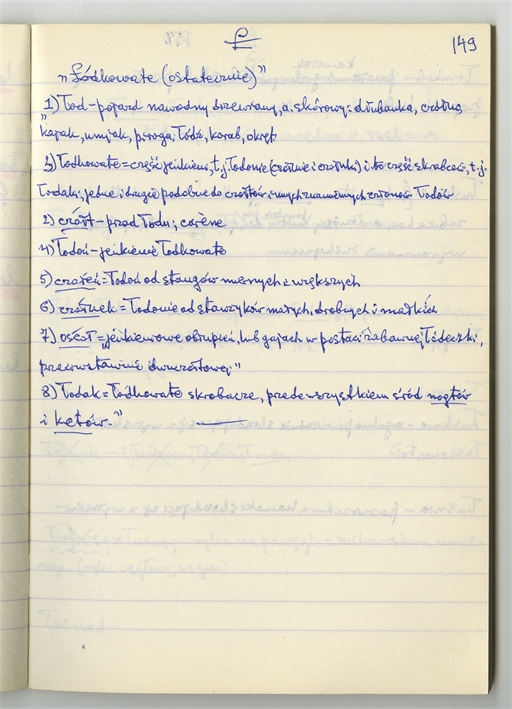 Ł
149
„Łódkowate (ostatecznie)”
1) Łod – pojazd nawodny drzewiany, a. skórowy: dłubanka, czółno,
kajak, umjak, piroga, łódź, korab, okręt.
3) Łodkowate = część jeikieniu, t.j. Łodonie (czółnie i czółnki) i to część skrabców, t.j.
Łodaki; jedne i drugie podobne do czółtów i innych znamiennych członów Łodów
2) czółt – przód Łodu; carène
4) Łodoń – jeikienie Łodkowate
5) czółeń = Łodoń od stągów mernych z większych
6) czółnek = Łodonie od stawrzyków małych, drobnych i małkich
7) oscół = jeikieniowe obrupień, lub gajach w postaci rzabawnej Łódeczki,
przeciwstawnie dwuczółtowej”
8) Łodak = Łodkowate skrobacze, przedewszystkiem śród nogtów
i ketów.”